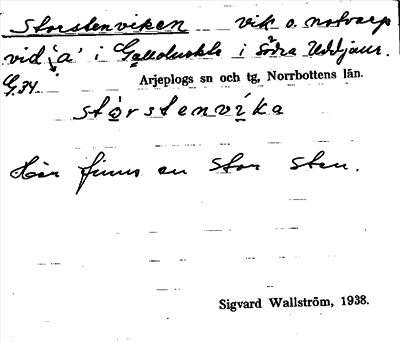 Storstenviken vik o. notvarp
vid 'a' i Galloluokte i Södra Uddjaur.
G.34 Arjeplogs sn och tg, Norrbottens län.
stòrstenvíka
Här finns en stor sten.
Sigvard Wallström, 1938.